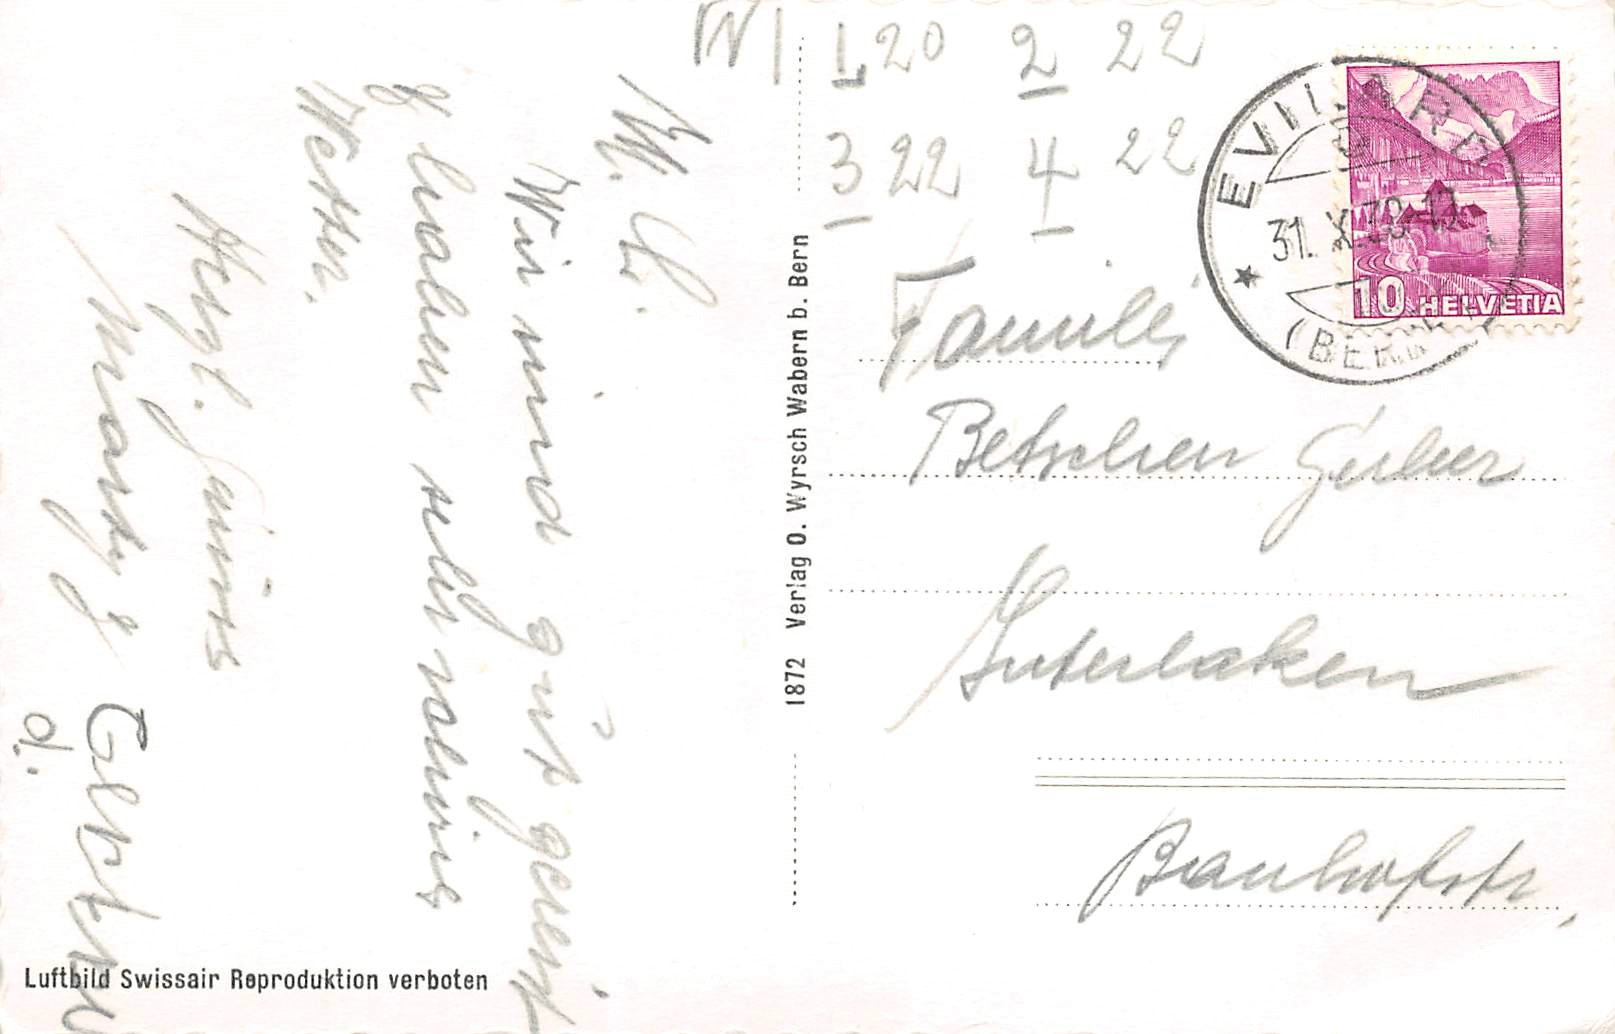 M. L.
Wir sind gut gereist
& haben sehr schönes
Wetter.
Herzl. Grüsse
Marty &
d.
N 1 20 2 22
3 22 4 22
EVILARD
31. X. 38-12
(BERN)
10 HELVETIA
Familie
Betschen Gerber
Interlaken
Bahnhofstr.
1872 Verlag O. Wyrsch Wabern b. Bern
Luftbild Swissair Reproduktion verboten